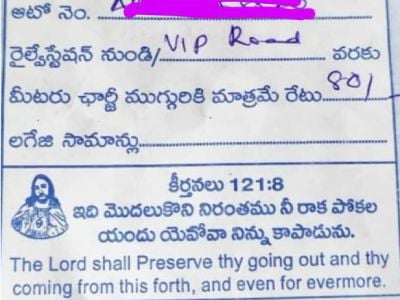 ఆటో నెం.
రైల్వేస్టేషన్ నుండి/ VIP Road వరకు
మీటరు ఛార్జీ ముగ్గురికి మాత్రమే రేటు 80/
లగేజి సామాన్లు
కీర్తనలు 121:8
ఇది మొదలుకొని నిరంతము నీ రాక పోకల
యందు యెహోవా నిన్ను కాపాడును.
The Lord shall Preserve thy going out and thy
coming from this forth, and even for evermore.